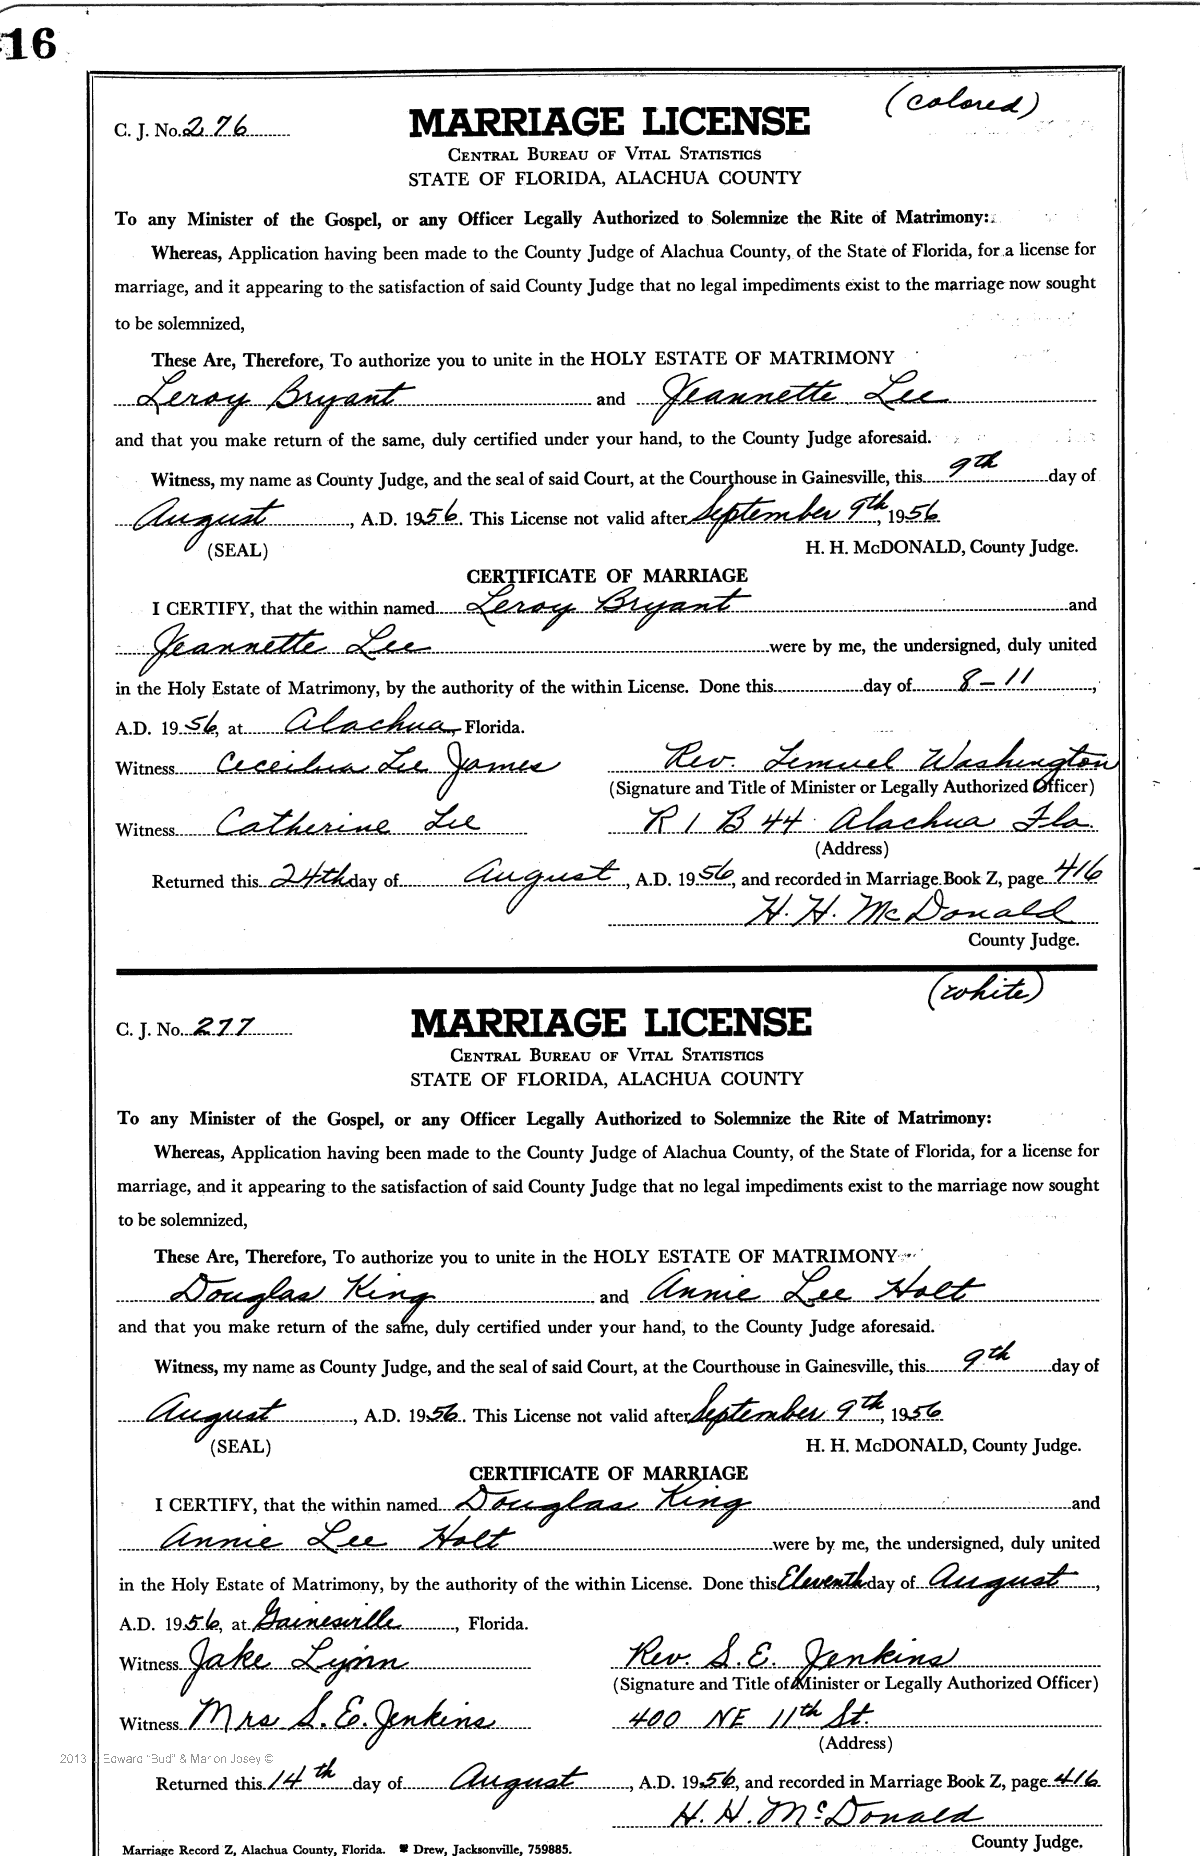 16
(colored)
C. J. No. 276
MARRIAGE LICENSE
CENTRAL BUREAU OF VITAL STATISTICS
STATE OF FLORIDA, ALACHUA COUNTY
To any Minister of the Gospel, or any Officer Legally Authorized to Solemnize the Rite of Matrimony:
Whereas, Application having been made to the County Judge of Alachua County, of the State of Florida, for a license for
marriage, and it appearing to the satisfaction of said County Judge that no legal impediments exist to the marriage now sought
to be solemnized,
These Are, Therefore, To authorize you to unite in the HOLY ESTATE OF MATRIMONY
Leroy Bryant and Jeannette Lee
and that you make return of the same, duly certified under your hand, to the County Judge aforesaid.
Witness, my name as County Judge, and the seal of said Court, at the Courthouse in Gainesville, this 9th day of
August, A.D. 1956. This License not valid after September 9th, 1956
(SEAL) H. H. McDONALD, County Judge.
CERTIFICATE OF MARRIAGE
I CERTIFY, that the within named Leroy Bryant and
Jeannette Lee were by me, the undersigned, duly united
in the Holy Estate of Matrimony, by the authority of the within License. Done this day of 8-11,
A.D. 1956, at Alachua, Florida.
Witness Ceceilua Lee James Rev. Lemuel Washington
(Signature and Title of Minister or Legally Authorized Officer)
Witness Catherine Lee R 1 B 44 Alachua Fla.
(Address)
Returned this 24th day of August, A.D. 1956, and recorded in Marriage Book Z, page 416
H. H. McDonald
County Judge.
(white)
C. J. No. 277
MARRIAGE LICENSE
CENTRAL BUREAU OF VITAL STATISTICS
STATE OF FLORIDA, ALACHUA COUNTY
To any Minister of the Gospel, or any Officer Legally Authorized to Solemnize the Rite of Matrimony:
Whereas, Application having been made to the County Judge of Alachua County, of the State of Florida, for a license for
marriage, and it appearing to the satisfaction of said County Judge that no legal impediments exist to the marriage now sought
to be solemnized,
These Are, Therefore, To authorize you to unite in the HOLY ESTATE OF MATRIMONY
Douglas King and Annie Lee Holt
and that you make return of the same, duly certified under your hand, to the County Judge aforesaid.
Witness, my name as County Judge, and the seal of said Court, at the Courthouse in Gainesville, this 9th day of
August, A.D. 1956. This License not valid after September 9th, 1956
(SEAL) H. H. McDONALD, County Judge.
CERTIFICATE OF MARRIAGE
I CERTIFY, that the within named Douglas King and
Annie Lee Holt were by me, the undersigned, duly united
in the Holy Estate of Matrimony, by the authority of the within License. Done this Eleventh day of August,
A.D. 1956, at Gainesville, Florida.
Witness Jake Lynn Rev. S. E. Jenkins
(Signature and Title of Minister or Legally Authorized Officer)
Witness Mrs S. E. Jenkins 400 NE 11th St.
(Address)
2013 Edward "Bud" & Marion Josey ©
Returned this 14th day of August, A.D. 1956, and recorded in Marriage Book Z, page 416
H. H. McDonald
County Judge.
Marriage Record Z, Alachua County, Florida. Drew, Jacksonville, 759885.